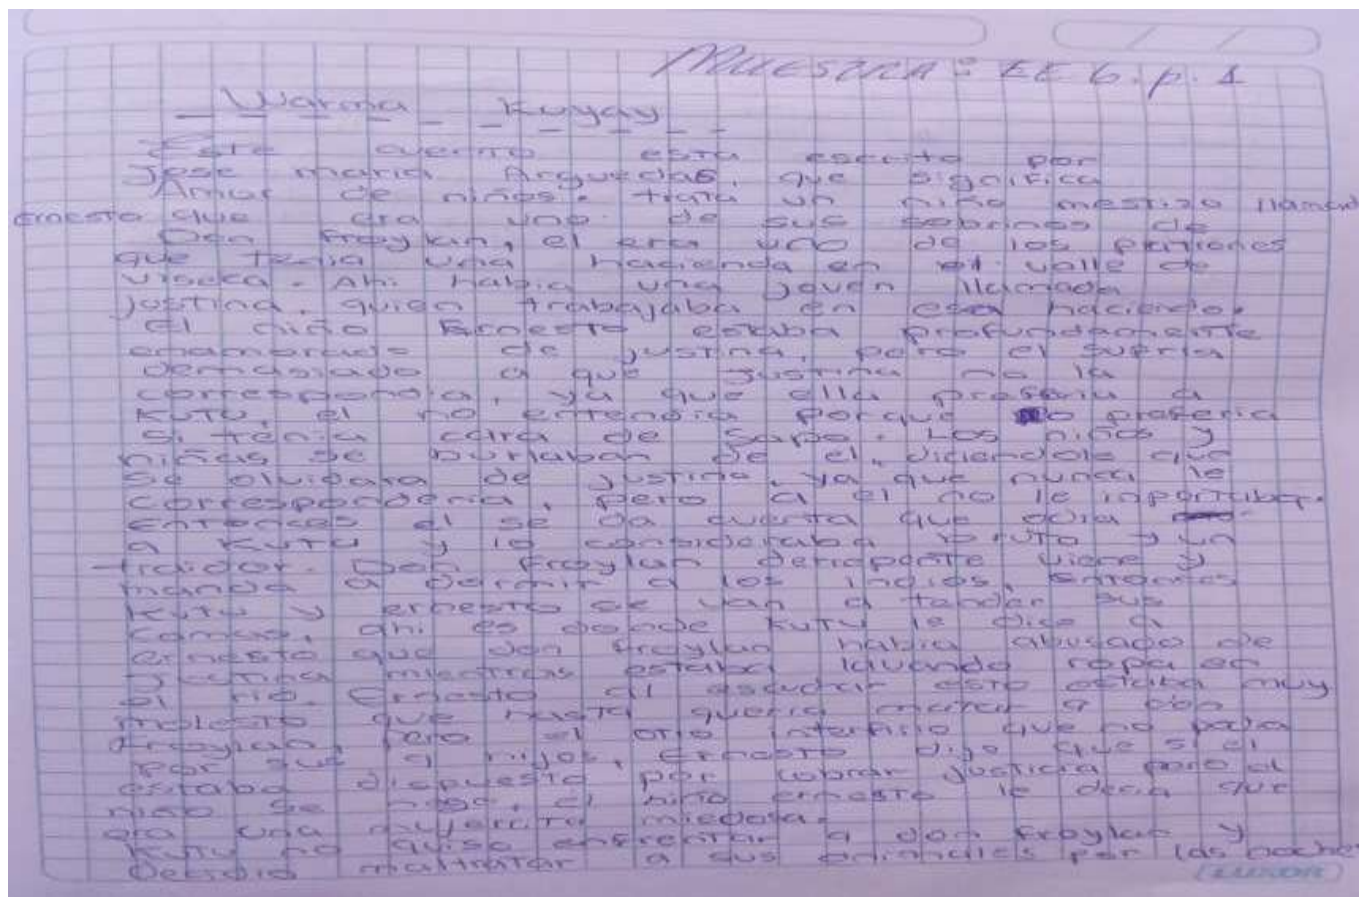 MUESTRA: EE 6. p. 1
Warma Kuyay
Este cuento esta escrito por
Jose maria Arguedas, que significa
Amor de niños. trata un niño mestizo llamado
Ernesto que era uno de sus sobrinos de
Don Froylan, el era uno de los patrones
que tenia una hacienda en el valle de
viseca. Ahi habia una joven llamada
justina, quien trabajaba en esa hacienda.
El niño Ernesto estaba profundamente
enamorado de justina, pero el sufria
demasiado a que justina no la
correspondia, ya que ella preferia a
Kutu, el no entendia porque lo preferia
si tenia cara de sapo. Los niños y
niñas se burlaban de el, diciendole que
se olvidara de justina, ya que nunca le
corresponderia, pero a el no le importaba.
Entonces el se da cuenta que odia
a Kutu y le consideraba bruto y un
traidor. Don Froylan derrepente viene y
manda a dormir a los indios, Entonces
Kutu y ernesto se van a tender sus
camas, ahi es donde Kutu le dice a
ernesto que don froylan habia abusado de
justina mientras estaba lavando ropa en
el rio. Ernesto al escuchar esto estaba muy
molesto que hasta queria matar a don
Froylan, pero el otro que no podia
por sus hijos, Ernesto dijo que si el
estaba dispuesto por cobrar justicia pero el
se el niño ernesto le decia que
era una mujercita miedosa.
Kutu no quiso enfrentar a don Froylan y
Decidio maltratar a sus animales por las noches
LUXOR